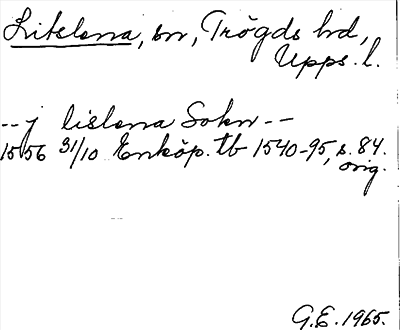 Litslena, sn, Trögds hd,
Upps. l.
-- j lislena Sokn --
1556 31/10 Enköp. tb 1540-95, s. 84.
orig.
G.E. 1965.